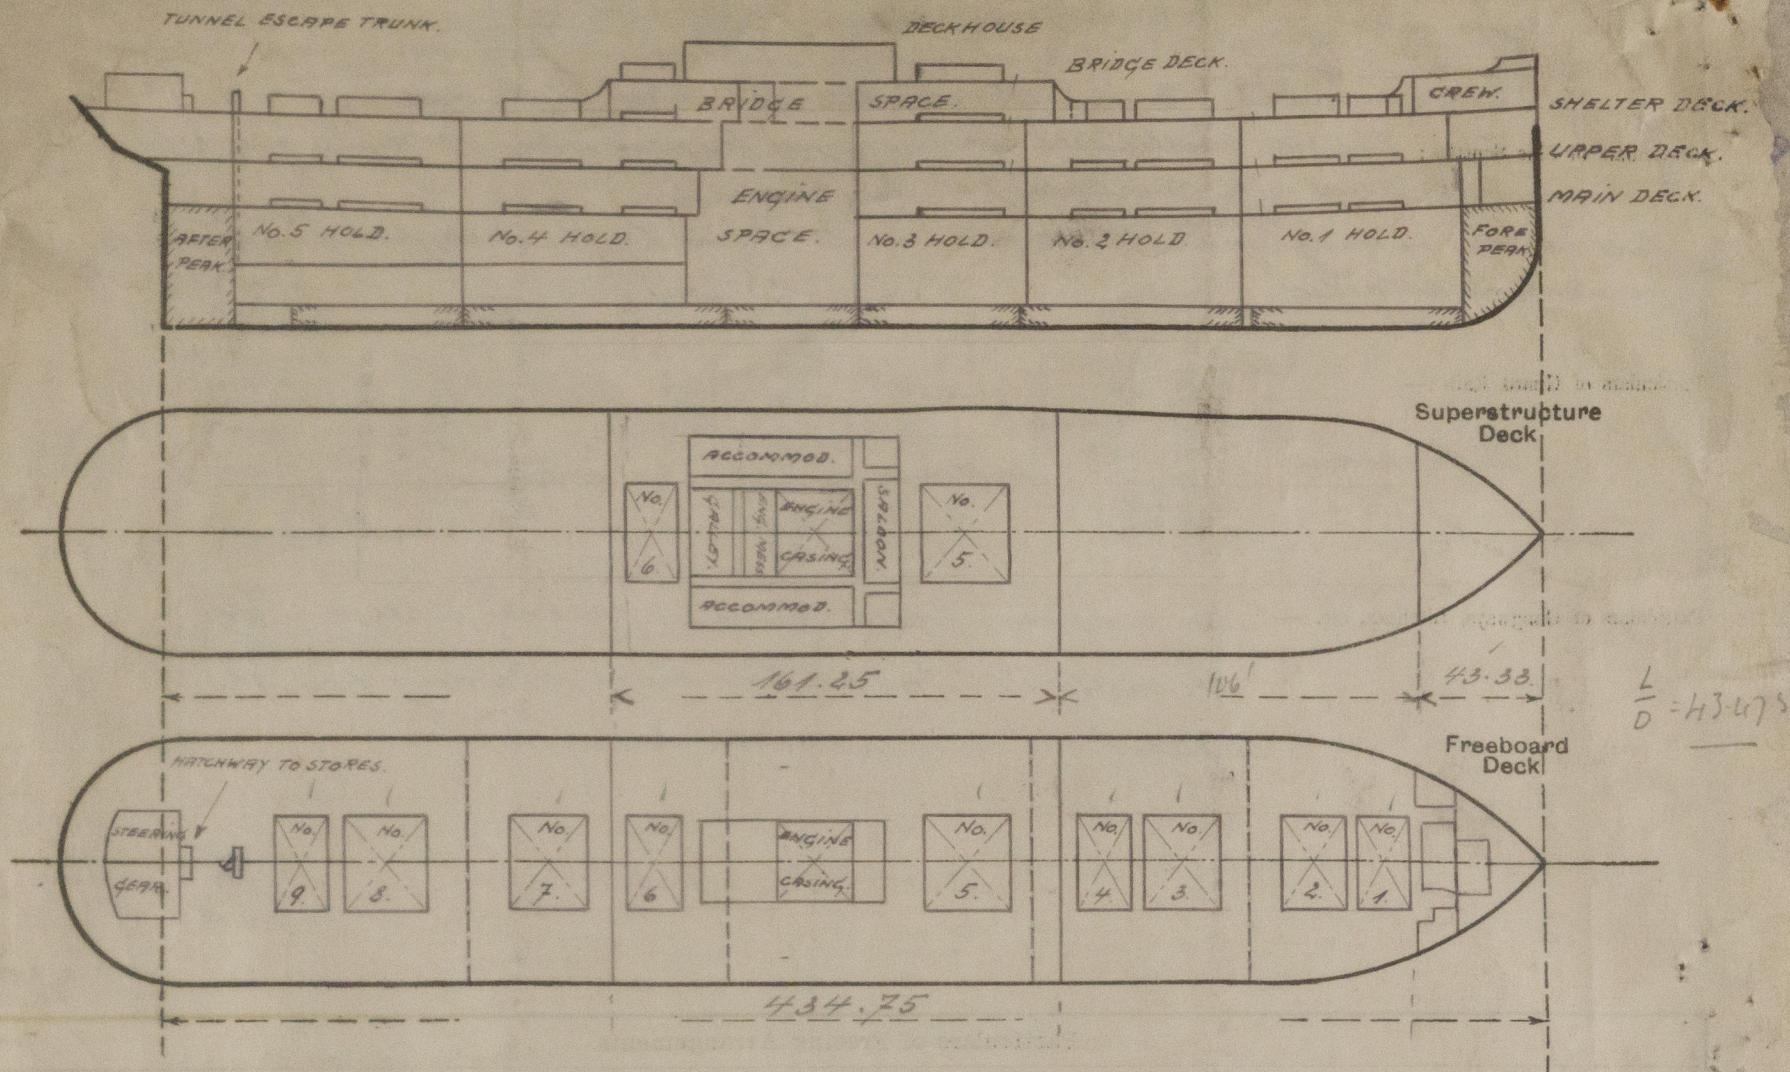 TUNNEL ESCAPE TRUNK.
DECKHOUSE
BRIDGE DECK.
BRIDGE SPACE.
CREW.
SHELTER DECK.
UPPER DECK.
MAIN DECK.
ENGINE
SPACE.
AFTER
PEAK
No.5 HOLD.
No.4 HOLD.
No.3 HOLD.
No.2 HOLD
No.1 HOLD.
FORE
PEAK
Superstructure
Deck
ACCOMMOD.
No.
6
GALLEY.
ENG. MESS
ENGINE
CASING.
SALOON.
No.
5.
ACCOMMOD.
161.25
106'
43.33
L
D
=43.475
Freeboard
Deck
HATCHWAY TO STORES.
STEERING
GEAR.
No.
9.
No.
8.
No.
7.
No.
6
ENGINE
CASING.
No.
5.
No.
4.
No.
3.
No.
2.
No.
1.
434.75